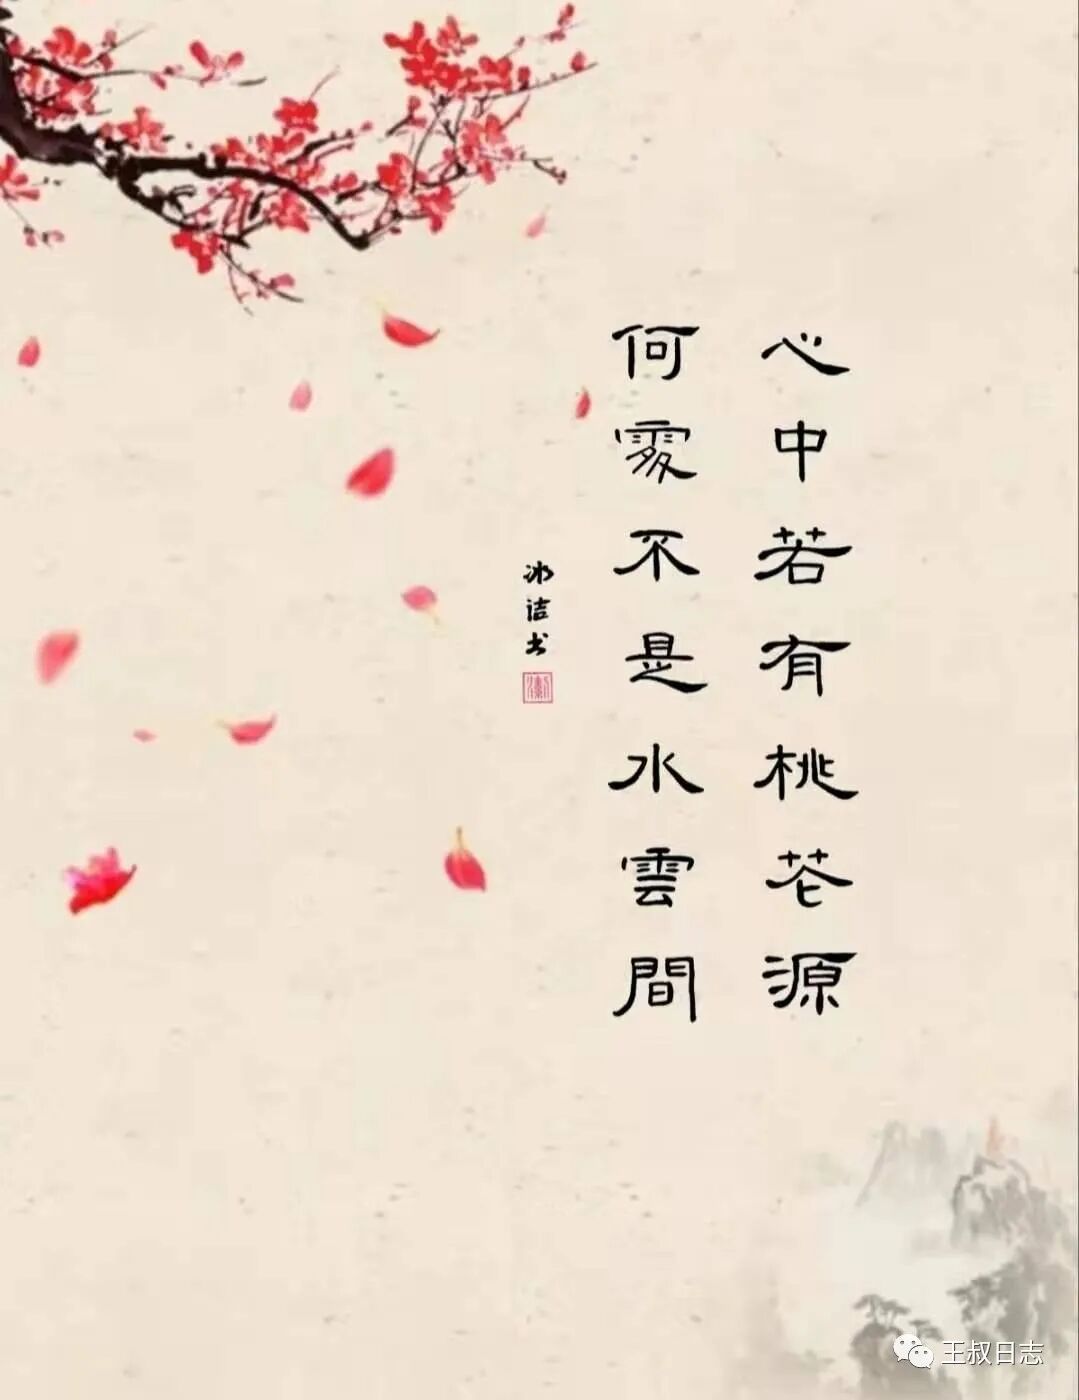 心中若有桃花源
何處不是水雲間
冰洁书
王叔日志